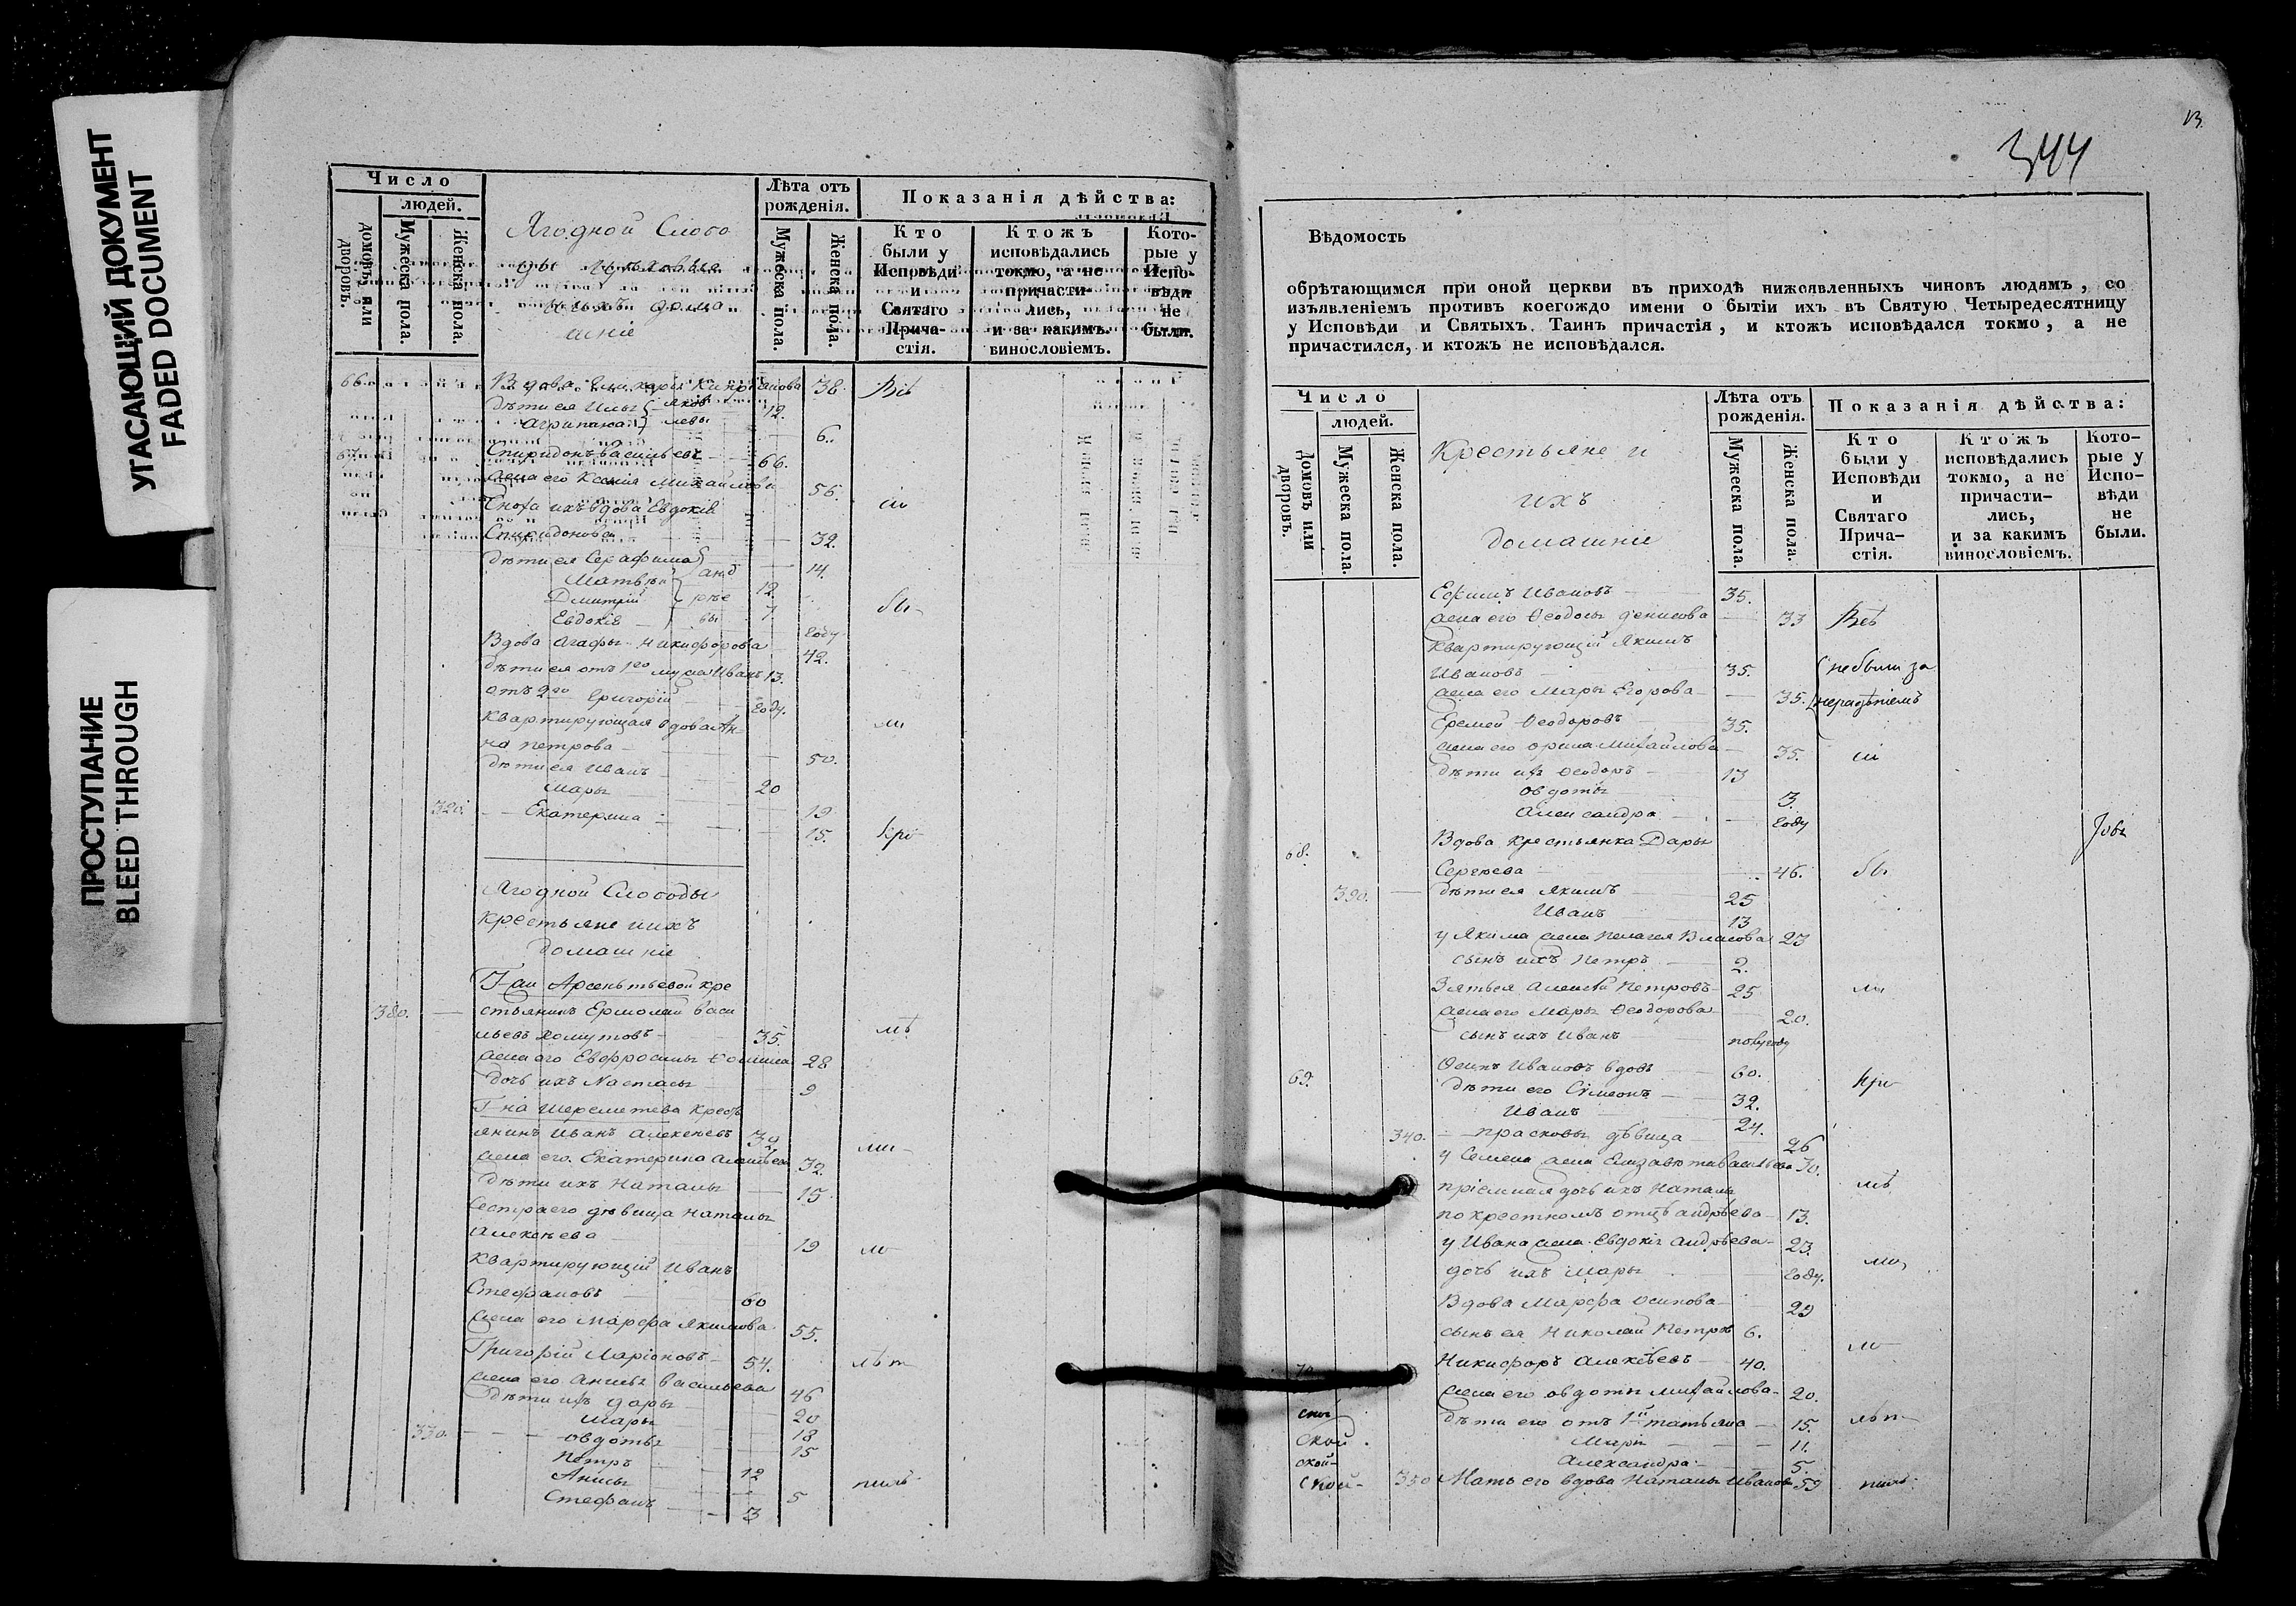 УГАСАЮЩИЙ ДОКУМЕНТ
FADED DOCUMENT
ПРОСТУПАНИЕ
BLEED THROUGH
Число
людей.
домовъ или дворовъ.
Мужеска пола.
Женска пола.
Ягодной Слобо
ды
дома
шніе
Лѣта отъ рожденія.
Мужеска пола.
Женска пола.
Показанія дѣйства:
Кто были у Исповѣди и Святаго Прича-стія.
Ктожъ исповѣдались токмо, а не причасти-лись, и за какимъ винословіемъ.
Кото-рые у Испо-вѣди не были.
66. Вдова 38. Всѣ
дѣти ея Илья 12.
Агрипина 6.
67. Спиридонъ Васильевъ 66.
жена его Ксенія Михайлова 56. сіи
Сноха ихъ вдова Евдокія
Спиридонова 32.
дѣти ея Серафима 14.
Матвѣй 12.
Дмитрій 7 бы
Евдокія году
Вдова Агафья Никифорова 42.
дѣти ея отъ 1го мужа Иванъ 13.
отъ 2го Григорій году.
Квартирующая вдова Ан- ли
на Петрова 50.
дѣти ея Иванъ 20
Марья 19
320. Екатерина 15. при
Ягодной Слободы
крестьяне и ихъ
домашніе
Г-жи Арсеньтьевой кре
380. стьянинъ Ермолай Васи
льевъ Хомутовъ 35. лѣ
жена его Евфросинья Фомина 28
дочь ихъ Настасья 9
Г-на Шереметева кресть
янинъ Иванъ Алексѣевъ 32 ли
жена его Екатерина 32.
дѣти ихъ Наталья 15.
Сестра его дѣвица Наталья
Алексѣева 19 ло
Квартирующій Иванъ
Стефановъ 60
жена его Марфа Якимова 55.
Григорій Ларіоновъ 54. лѣт
жена его Анисья Васильева 46
дѣти ихъ Дарья 20
Марья 18
330. Овдотья 15
Петръ 12
Анисья 5
Стефанъ 3
344
13.
Вѣдомость
обрѣтающимся при оной церкви въ приходѣ нижоявленныхъ чиновъ людямъ, со
изъявленіемъ противъ коегождо имени о бытіи ихъ въ Святую Четыредесятницу
у Исповѣди и Святыхъ Таинъ причастія, и ктожъ исповѣдался токмо, а не
причастился, и ктожъ не исповѣдался.
Число
людей.
домовъ или дворовъ.
Мужеска пола.
Женска пола.
Крестьяне и
ихъ
домашніе
Лѣта отъ рожденія.
Мужеска пола.
Женска пола.
Показанія дѣйства:
Кто были у Исповѣди и Святаго Прича-стія.
Ктожъ исповѣдались токмо, а не причасти-лись, и за какимъ винословіемъ.
Кото-рые у Испо-вѣди не были.
Ефимъ Ивановъ 35.
жена его Ѳеодосья Денисова 33 Всѣ
Квартирующій Якимъ
Ивановъ 35. не были за
жена его Марья Егорова 35. нерадѣніемъ
Еремей Ѳеодоровъ 35.
жена его Орина Михайлова 35. сіи
дѣти ихъ Ѳеодоръ 13
Овдотья 3.
Александра году
68. Вдова крестьянка Дарья
Сергѣева 46. бы
390. дѣти ея Якимъ 25
Иванъ 13
у Якима жена Пелагея Власова 23
сынъ ихъ Петръ 2.
Зять ея Алексѣй Петровъ 25 ли
жена его Марья Ѳеодорова 20.
сынъ ихъ Иванъ полугоду
69. Осипъ Ивановъ вдовъ 60. при
дѣти его Сѵмеонъ 32.
Иванъ 24.
340. Прасковья дѣвица 26
у Семена жена Елизавета Васильева 30.
пріемная дочь ихъ Наталья лѣ
по крестномъ отцѣ Андрѣева 13.
у Ивана жена Евдокія Андрѣева 23.
дочь ихъ Марья году.
Вдова Марфа Осипова 29
сынъ ея Николай Петровъ 6. ло
70. Никифоръ Алексѣевъ 40.
жена его Овдотья Михайлова 20.
дѣти его отъ 1й Татьяна 15.
Скои Марія 11.
Скои Александра 5.
Скои 350 Мать его вдова Наталья Иванова 59